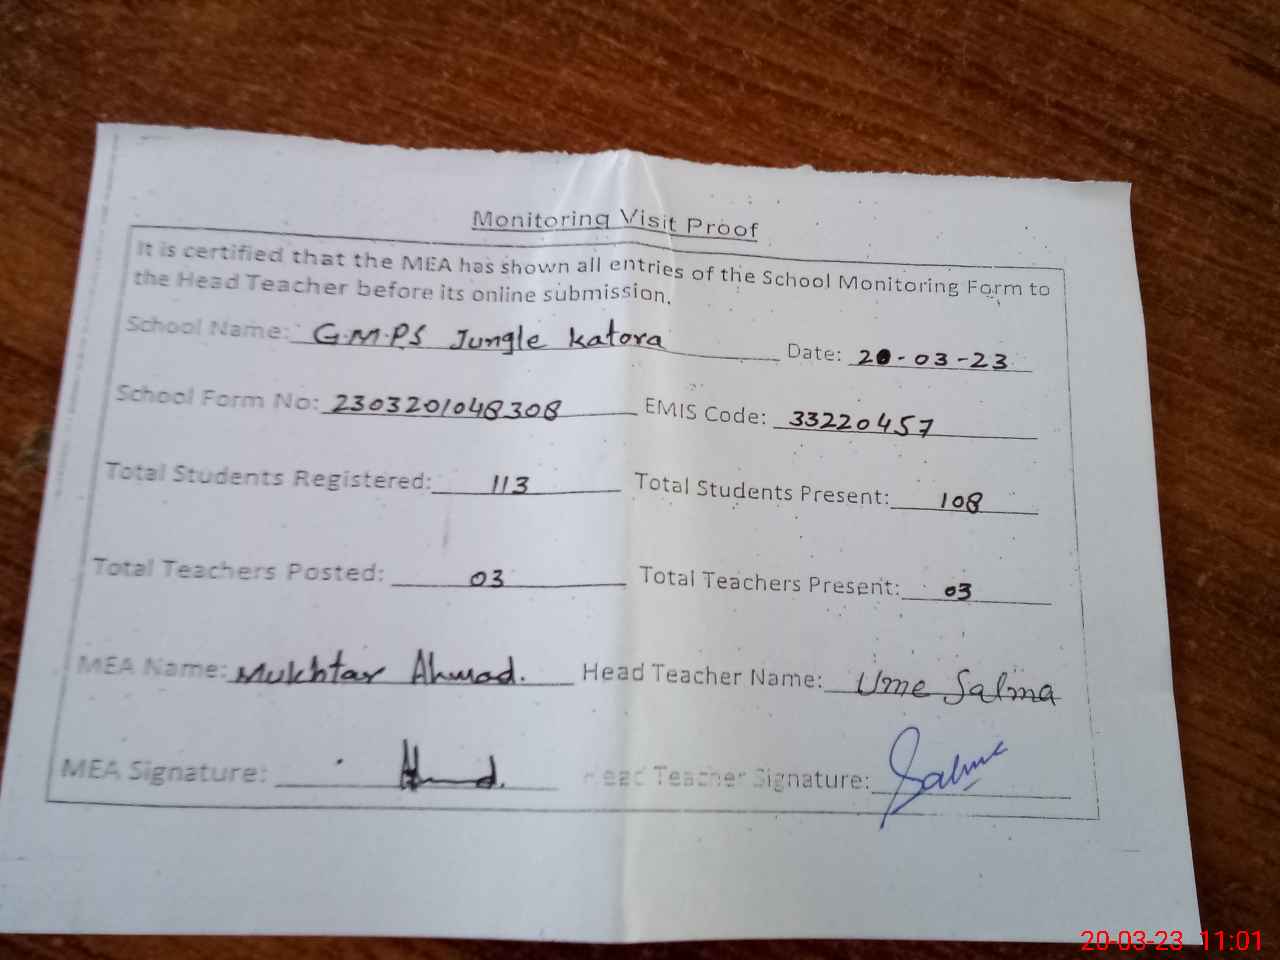 Monitoring Visit Proof
It is certified that the MEA has shown all entries of the School Monitoring Form to
the Head Teacher before its online submission.
School Name: G.M.P.S Jungle Katora Date: 20-03-23
School Form No: 2303201048308 EMIS Code: 33220457
Total Students Registered: 113 Total Students Present: 108
Total Teachers Posted: 03 Total Teachers Present: 03
MEA Name: Mukhtar Ahmad. Head Teacher Name: Ume Salma
MEA Signature: Head Teacher Signature: Salma
20-03-23 11:01